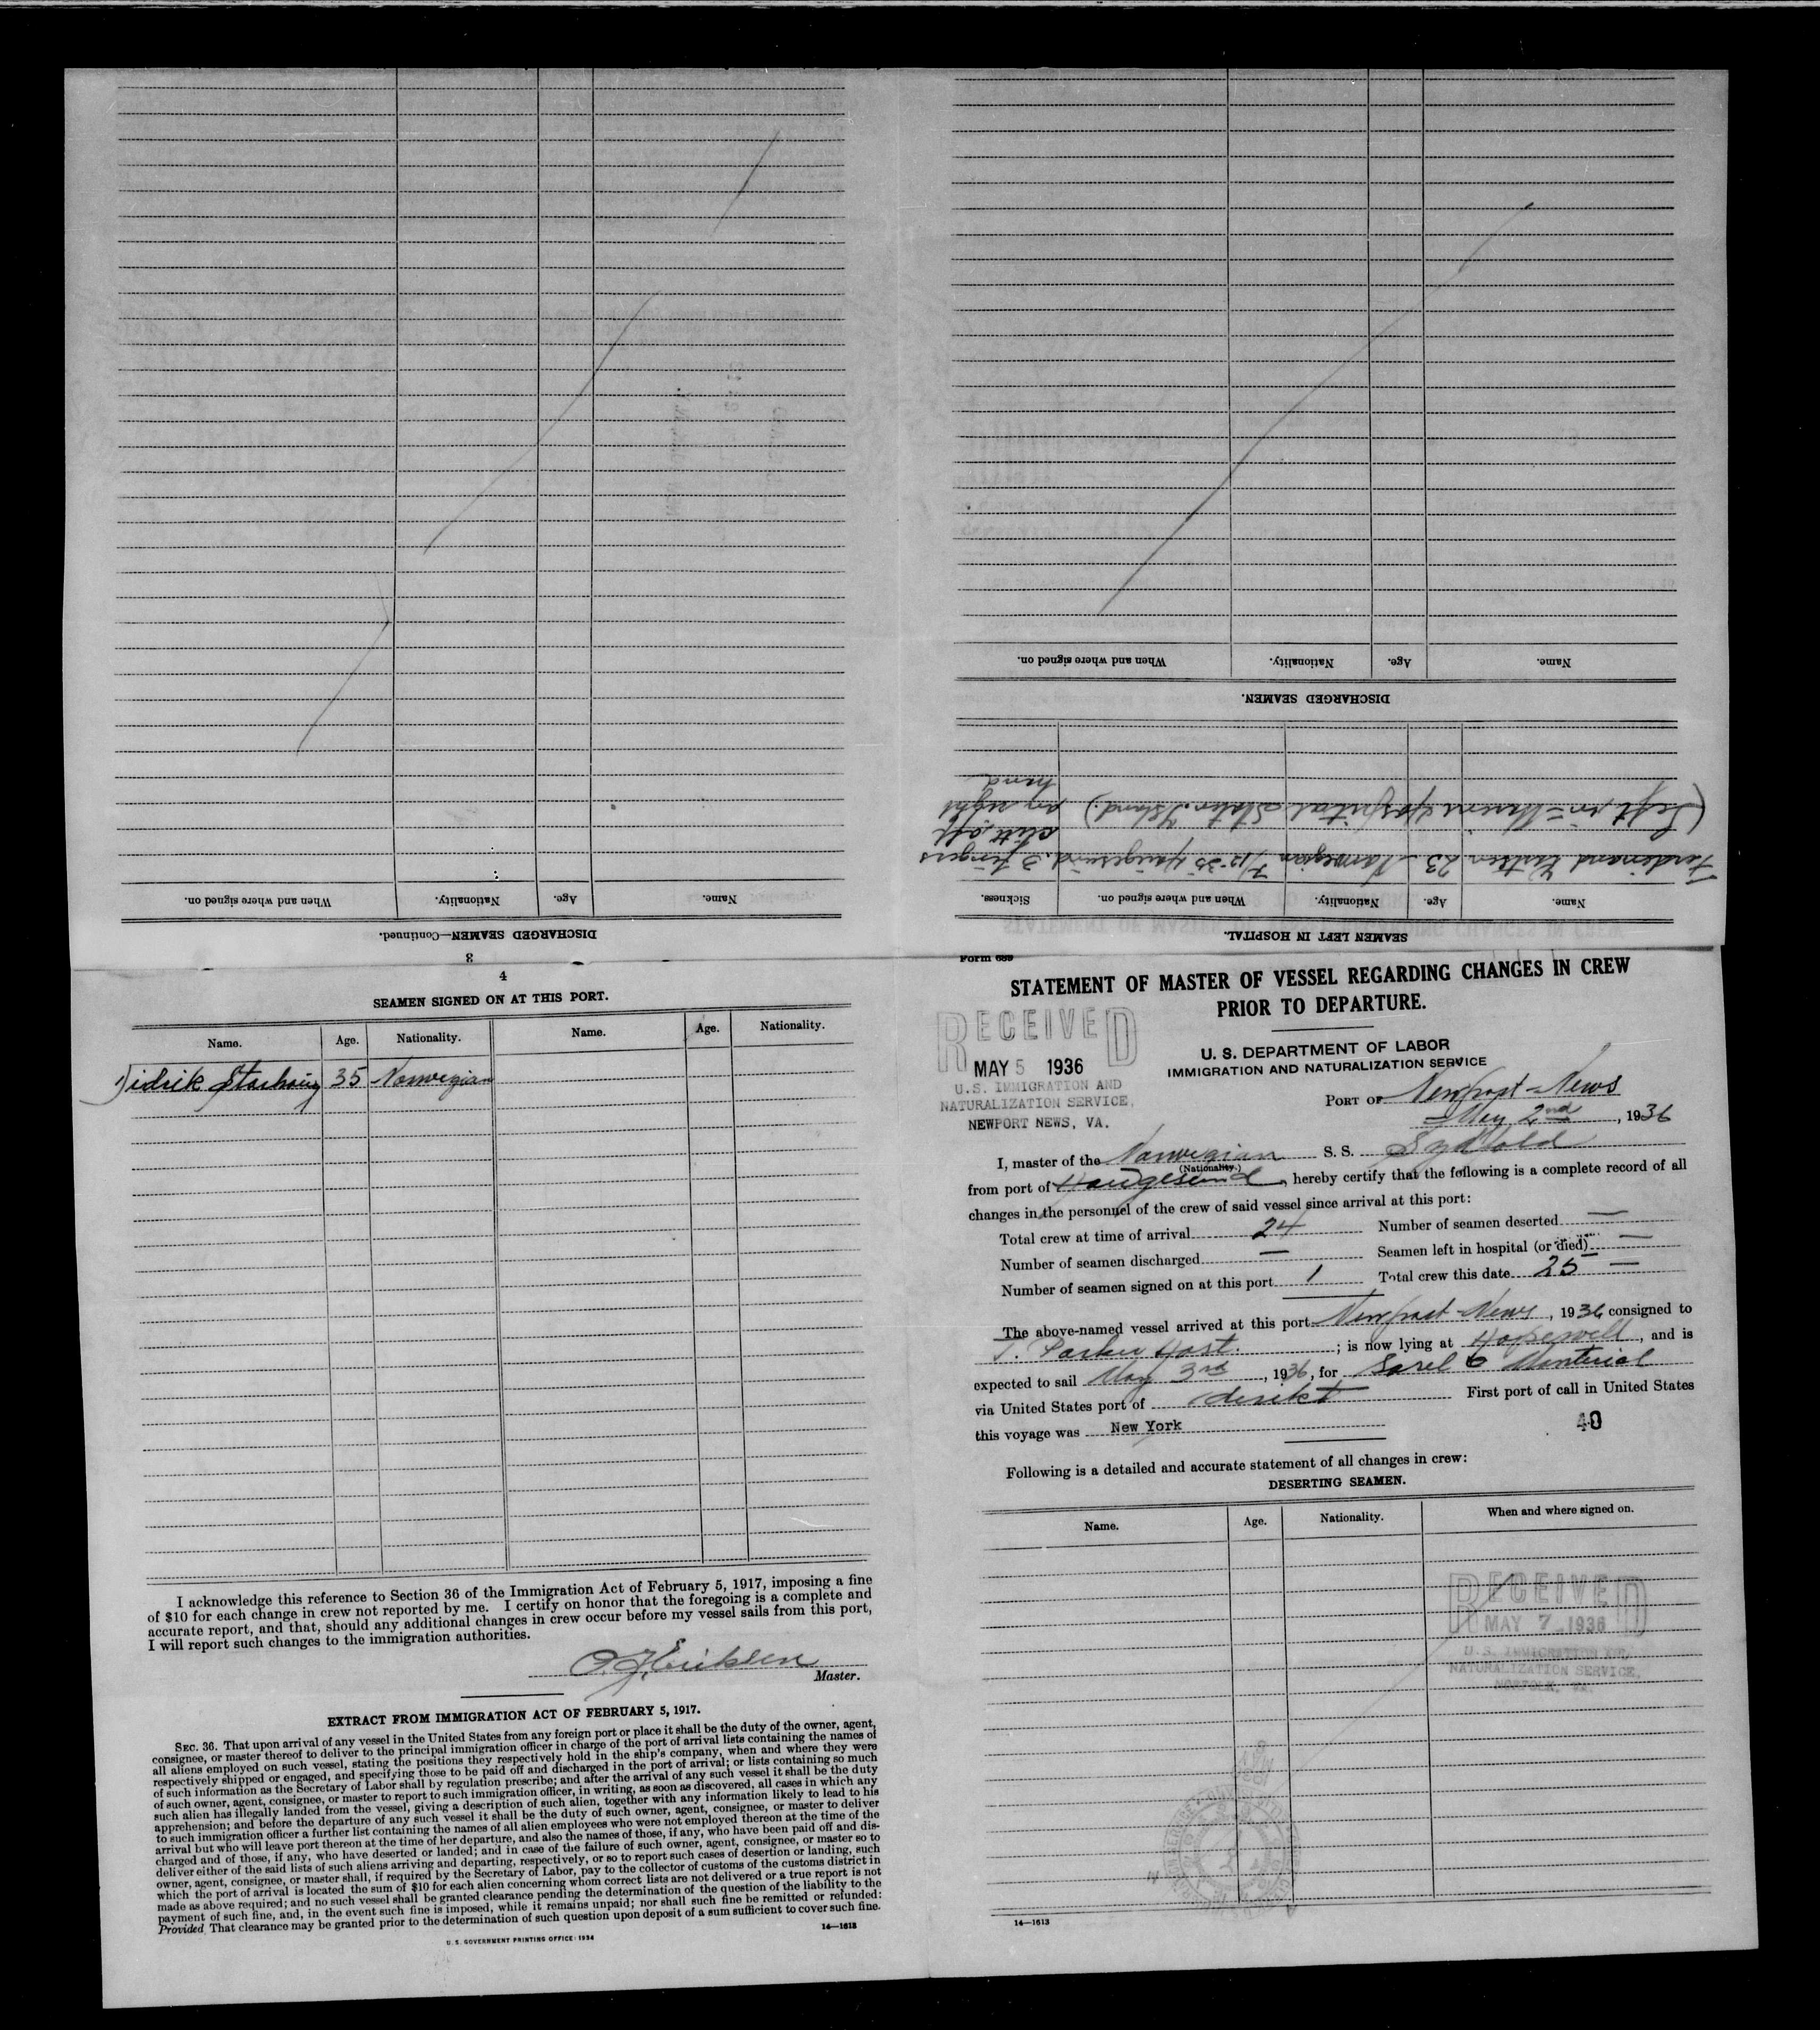 Form 689
STATEMENT OF MASTER OF VESSEL REGARDING CHANGES IN CREW
PRIOR TO DEPARTURE.
RECEIVED
MAY 5 1936
U.S. IMMIGRATION AND
NATURALIZATION SERVICE,
NEWPORT NEWS, VA.
U. S. DEPARTMENT OF LABOR
IMMIGRATION AND NATURALIZATION SERVICE
PORT OF Newport-News
May 2nd, 1936
I, master of the Norwegian S. S. Sydfold
(Nationality.)
from port of Haugesund, hereby certify that the following is a complete record of all
changes in the personnel of the crew of said vessel since arrival at this port:
Total crew at time of arrival 24 Number of seamen deserted —
Number of seamen discharged — Seamen left in hospital (or died) —
Number of seamen signed on at this port 1 Total crew this date 25 —
The above-named vessel arrived at this port Newport-News, 1936 consigned to
T. Parker Host.; is now lying at Hopewell, and is
expected to sail May 3rd, 1936, for Sorel Monterial
via United States port of direkt First port of call in United States
this voyage was New York
40
Following is a detailed and accurate statement of all changes in crew:
DESERTING SEAMEN.
Name. Age. Nationality. When and where signed on.
RECEIVED
MAY 7 1936
U.S. IMMIGRATION
NATURALIZATION SERVICE,
NORFOLK, VA.
14—1613
SEAMEN LEFT IN HOSPITAL.
Name. Age. Nationality. When and where signed on. Sickness.
Ferdinand 23 Norwegian 7/12-35 Haugesund. 3 fingers
off
(Left in Marine Hospital Staten Island.) on right
hand
DISCHARGED SEAMEN.
Name. Age. Nationality. When and where signed on.
3
DISCHARGED SEAMEN—Continued.
Name. Age. Nationality. When and where signed on.
4
SEAMEN SIGNED ON AT THIS PORT.
Name. Age. Nationality. Name. Age. Nationality.
Didrik 35 Norwegian
I acknowledge this reference to Section 36 of the Immigration Act of February 5, 1917, imposing a fine
of $10 for each change in crew not reported by me. I certify on honor that the foregoing is a complete and
accurate report, and that, should any additional changes in crew occur before my vessel sails from this port,
I will report such changes to the immigration authorities.
Eriksen
Master.
EXTRACT FROM IMMIGRATION ACT OF FEBRUARY 5, 1917.
SEC. 36. That upon arrival of any vessel in the United States from any foreign port or place it shall be the duty of the owner, agent,
consignee, or master thereof to deliver to the principal immigration officer in charge of the port of arrival lists containing the names of
all aliens employed on such vessel, stating the positions they respectively hold in the ship's company, when and where they were
respectively shipped or engaged, and specifying those to be paid off and discharged in the port of arrival; or lists containing so much
of such information as the Secretary of Labor shall by regulation prescribe; and after the arrival of any such vessel it shall be the duty
of such owner, agent, consignee, or master to report to such immigration officer, in writing, as soon as discovered, all cases in which any
such alien has illegally landed from the vessel, giving a description of such alien, together with any information likely to lead to his
apprehension; and before the departure of any such vessel it shall be the duty of such owner, agent, consignee, or master to deliver
to such immigration officer a further list containing the names of all alien employees who were not employed thereon at the time of the
arrival but who will leave port thereon at the time of her departure, and also the names of those, if any, who have been paid off and dis-
charged and of those, if any, who have deserted or landed; and in case of the failure of such owner, agent, consignee, or master so to
deliver either of the said lists of such aliens arriving and departing, respectively, or so to report such cases of desertion or landing, such
owner, agent, consignee, or master shall, if required by the Secretary of Labor, pay to the collector of customs of the customs district in
which the port of arrival is located the sum of $10 for each alien concerning whom correct lists are not delivered or a true report is not
made as above required; and no such vessel shall be granted clearance pending the determination of the question of the liability to the
payment of such fine, and, in the event such fine is imposed, while it remains unpaid; nor shall such fine be remitted or refunded:
Provided That clearance may be granted prior to the determination of such question upon deposit of a sum sufficient to cover such fine.
14—1613
U. S. GOVERNMENT PRINTING OFFICE: 1934